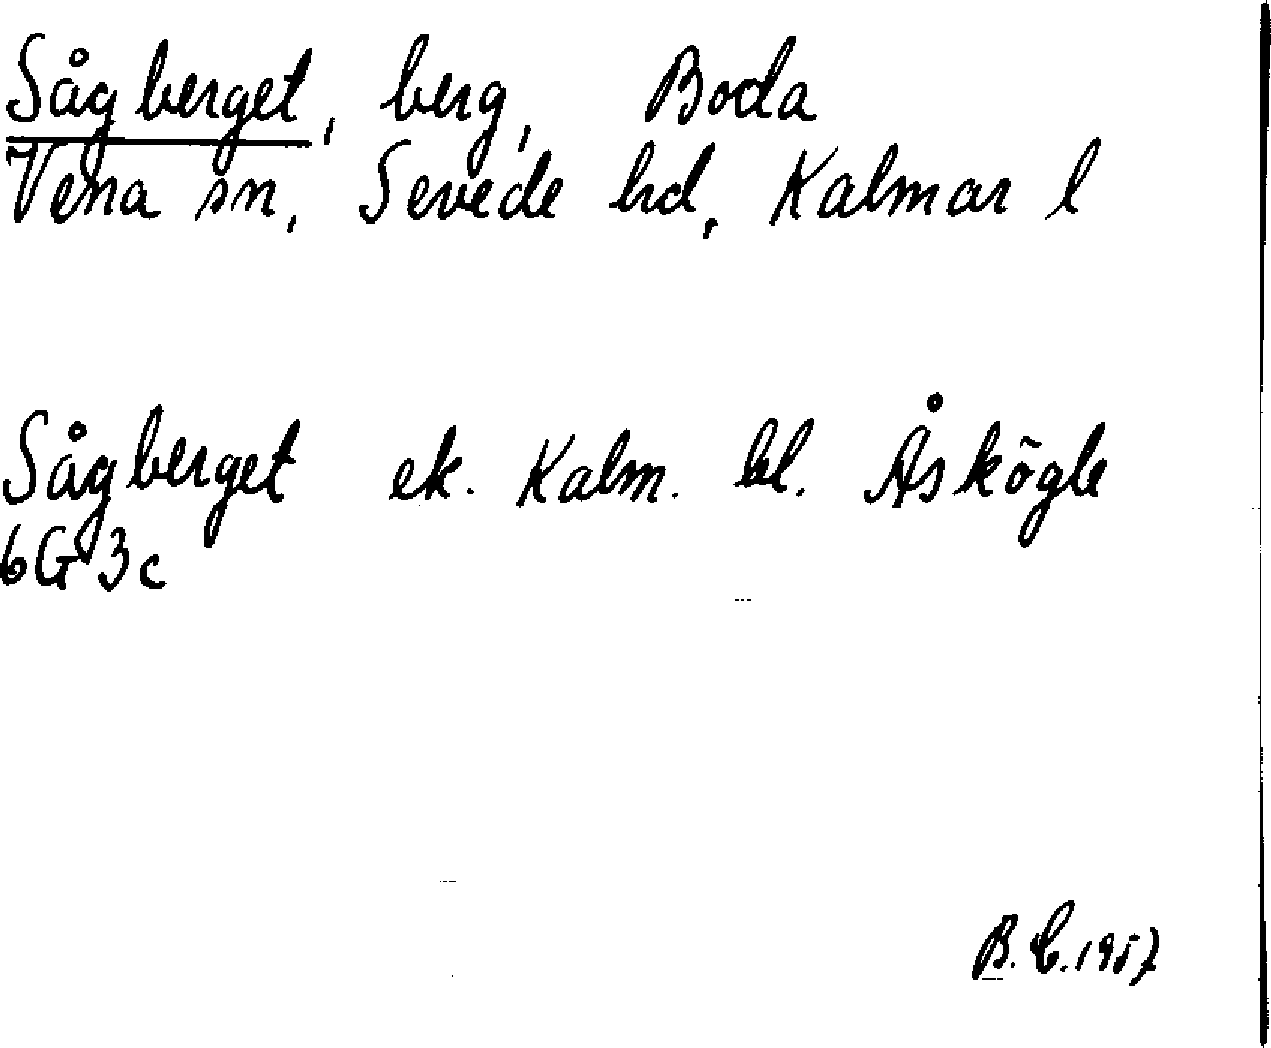 Sågberget, berg, Boda
Vena sn, Sevede hd, Kalmar l
Sågberget ek. Kalm. bl. Åskögle
6G3c
B.C. 1957